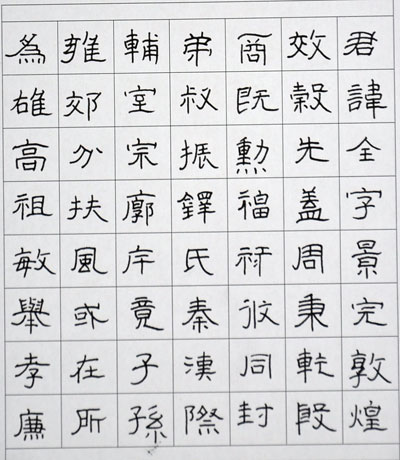 君諱全字景完敦煌
效穀先蓋周秉乾殷
商既勳福攸同封
弟叔振鐸氏秦漢際
輔室宗廓斥竟子孫
雍郊分扶風或在所
為雄高祖敏舉孝廉